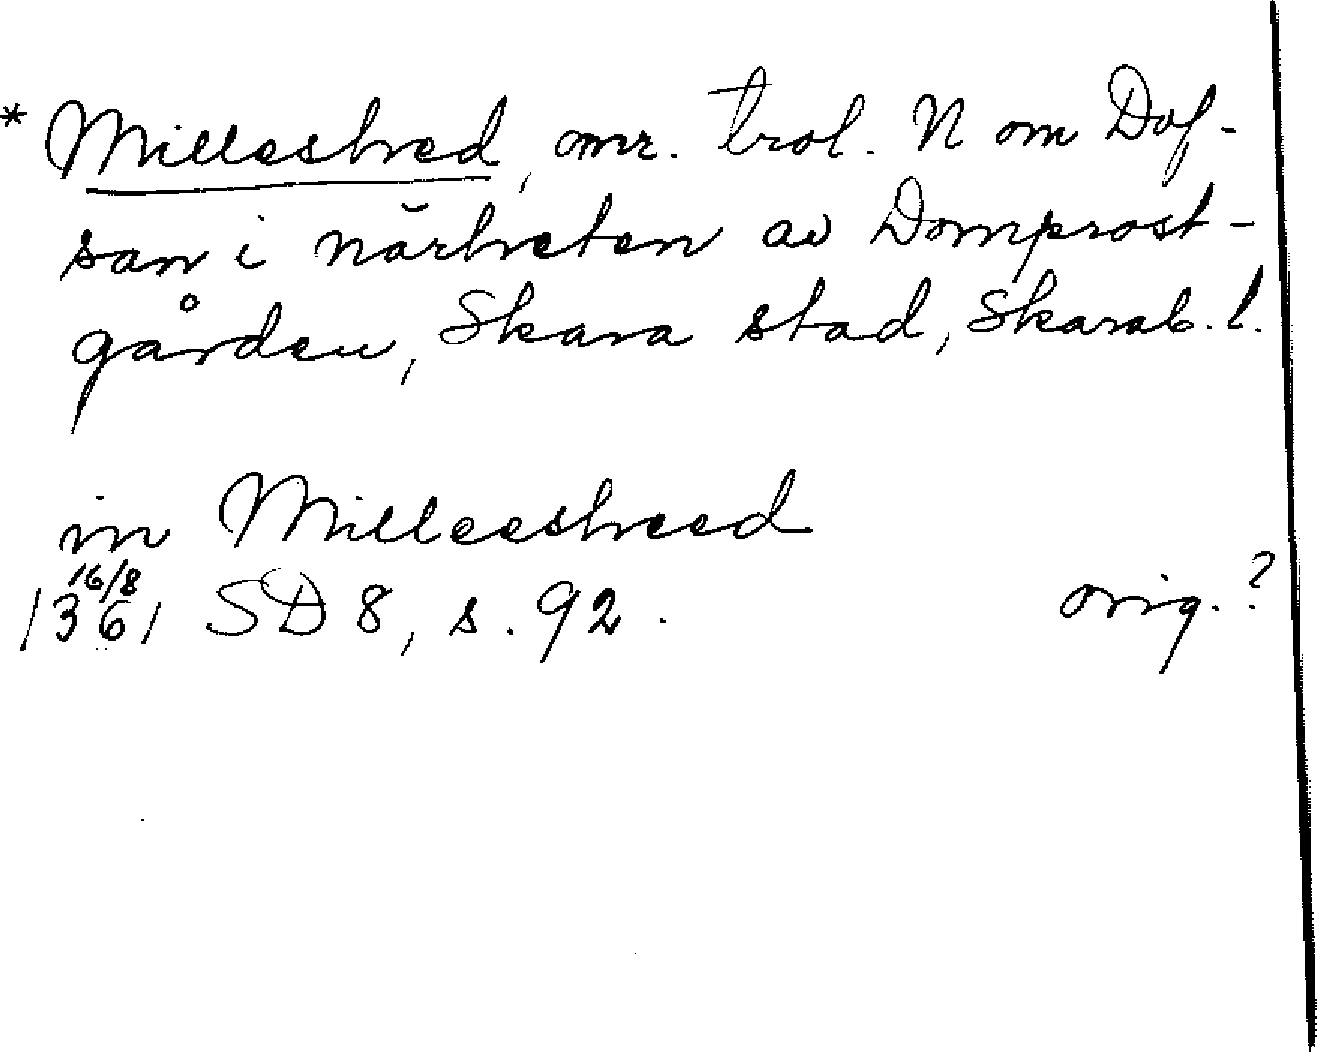 * Milleshed, omr. trol. N om Dof-
san i närheten av Domprost-
gården, Skara stad, Skarab. l.
in Milleesheed
16/8
1361 SD 8, s. 92. orig.?